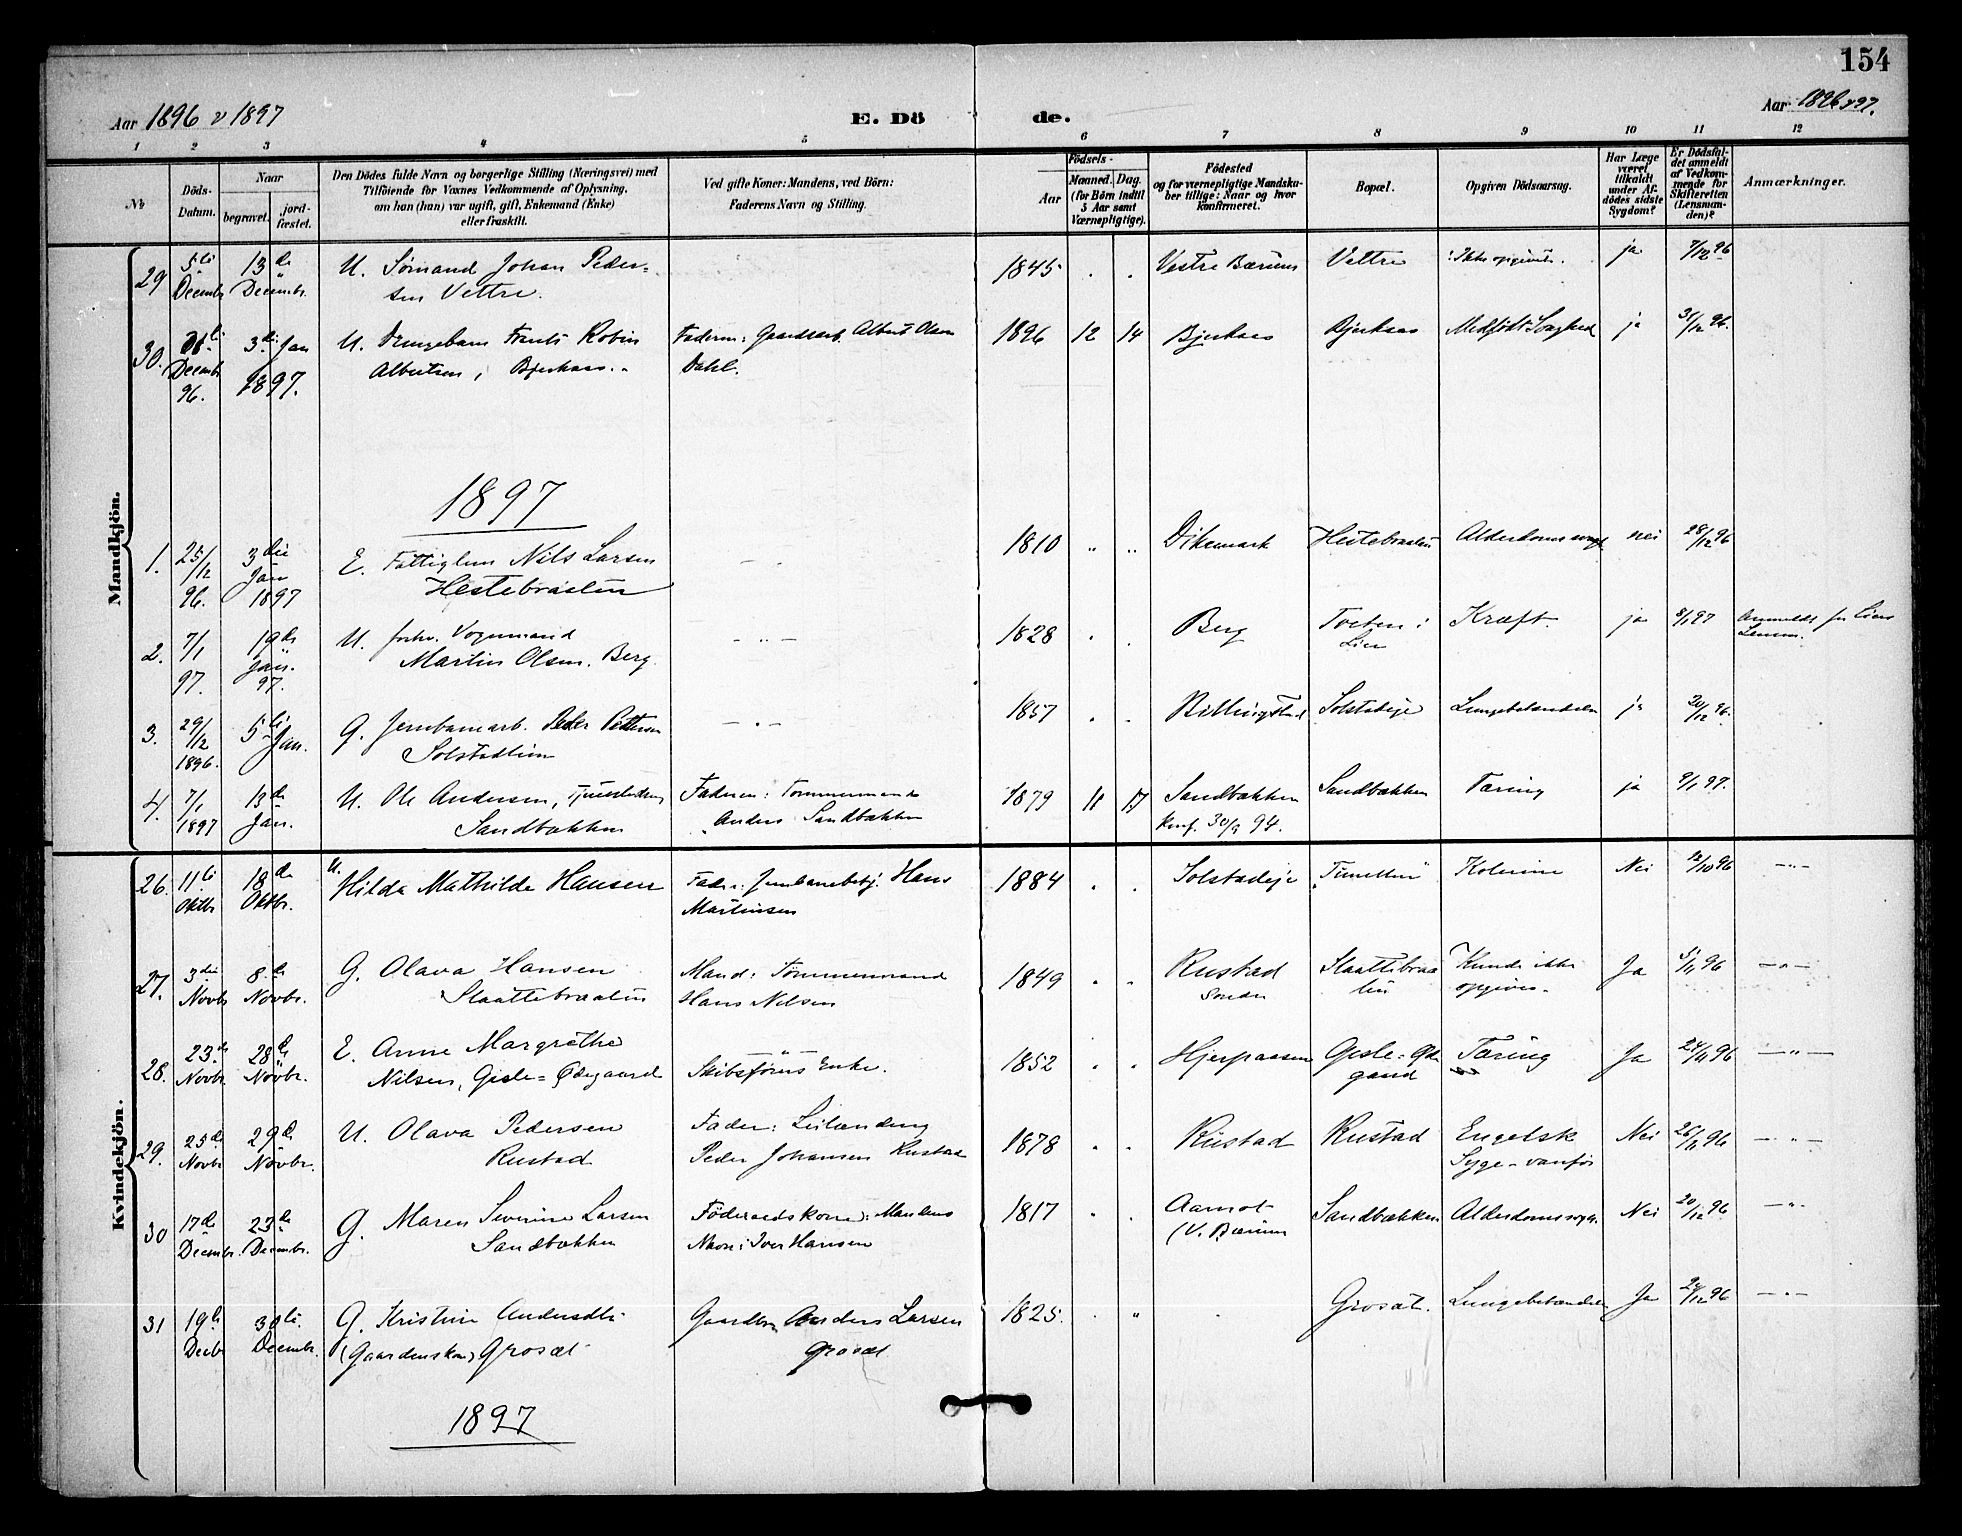 154
Aar 1896 & 1897
E. Dö
de.
Aar 1896 & 97.
1 2 3 4 5 6 7 8 9 10 11 12
No
Döds-Datum.
Naar
begravet.
jord-fæstet.
Den Dödes fulde Navn og borgerlige Stilling (Næringsvei) med
Tilföiende for Voxnes Vedkommende af Oplysning,
om han (hun) var ugift, gift, Enkemand (Enke)
eller fraskilt.
Ved gifte Koner: Mandens, ved Börn:
Faderens Navn og Stilling.
Födsels-
Aar
Maaned. Dag.
(for Börn indtil
5 Aar samt
Værnepligtige).
Födested
og for værnepligtige Mandska-
ber tillige: Naar og hvor
konfirmeret.
Bopæl.
Opgiven Dödsaarsag.
Har Læge
været
tilkaldt
under Af-
dödes sidste
Sygdom?
Er Dödsfal-
det anmeldt
af Vedkom-
mende for
Skifteretten
(Lensman-
den)?
Anmærkninger.
Mandkjön.
29 5te Decembr 13de Decembr. U. Sømand Johan Peder-
sen Vettre. 1845 . . Vestre Bærum Vettre Ikke opgivet. ja 7/12 96
30. Decembr 96. 3die Jan 1897. U. Drengebarn Frants Robin
Albertsen, Bjerkaas. Faderen: Gaardarb. Albert Olsen
Dahl. 1896 12 14 Bjerkaas Bjerkaas Medfødt Svaghed ja 31/12 96.
1897
1. 25/12 96. 3die Jan 1897 E. Fattiglem Nils Larsen
Hestebraaten - . 1810 " " Dikemark Hestebraaten Alderdomssvagh. nei 28/12 96
2. 7/1 97. 19de Jan. 97. U. forhv. Vognmand
Martin Olsen Berg - " - 1828 . . Berg Tveten i
Lier Kræft. ja 8/1 97 Anmeldt for Liers
Lensm.
3. 29/12 1896. 5te Jan. G. Jernbanearb. Peder Pettersen
Solstadlien - " - 1857 . . Billingstad Solstadeje Lungebetændelse ja 30/12 96.
4. 7/1 1897 13de Jan. U. Ole Andersen,
Sandbakken Faderen: Tømmermand
Anders Sandbakken 1879 11 17 Sandbakken
Konf. 30/9 94. Sandbakken Tæring ja 9/1 97.
Kvindekjön.
26. 11te Oktbr 18de Oktbr. U. Hilda Mathilde Hansen Fader: Jernbanebetj. Hans
Martinsen 1884 . . Solstadeje "Tunellen" Kolerine Nei 12/10 96 - " -
27. 3die Novbr 8de Novbr. G. Olava Hansen
Slaattebraaten Mand: Tømmermand
Hans Nilsen 1849 . . Rustad
Søndre Slaattebraa
ten Kunde ikke
opgives. Ja 5/11 96 - " -
28. 23de Novbr 28de Novbr. E. Anne Margrethe
Nilsen, Gisle-Ødegaard Skibsførers Enke. 1852 . . Hjerpaasen Gisle-Øde
gaard Tæring Ja 24/11 96 - " -
29. 25de Novbr 29de Novbr. U. Olava Pedersen
Rustad Fader: Leilænding
Peder Johansen Rustad 1878 . . Rustad Rustad Engelsk
Syge - vanfør Nei 26/11 96 - " -
30 17de Decembr. 23de Decembr. G. Maren Severine Larsen
Sandbakken Föderaadskone: Mandens
Navn: Iver Hansen 1817 . . Aamot
(V. Bærum Sandbakken Alderdomssvagh. Nei 20/12 96 - " -
31 19de Decbr 30te Decembr. G. Kristine Andersdtr
(Gaardmskone) Grosæt Gaardbr. Anders Larsen
Grosæt 1825. . " . Grosæt. Lungebetændelse Ja 24/12 96 - " -
1897